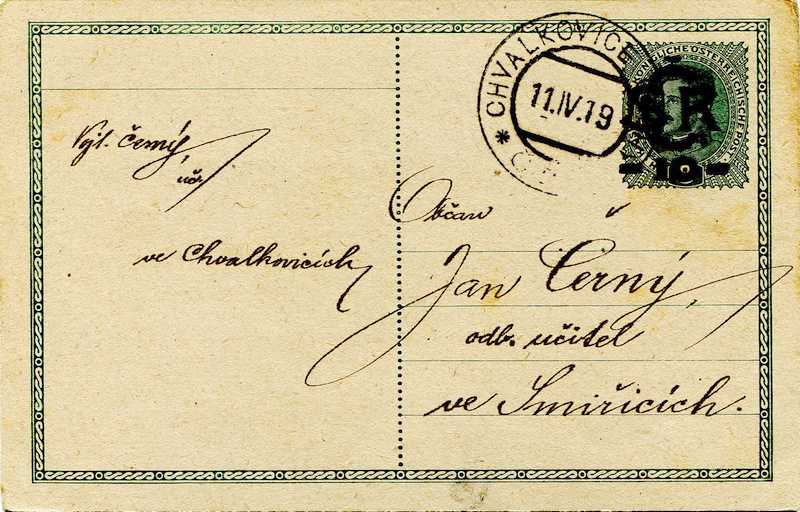 CHVALKOVICE
11.IV.19
KÖNIGLICHE ÖSTERREICHISCHE POST
ČSR
Vyř. Černý,
uč.
ve Chvalkovicích
Občan
Jan Černý,
odb. učitel
ve Smiřicích.